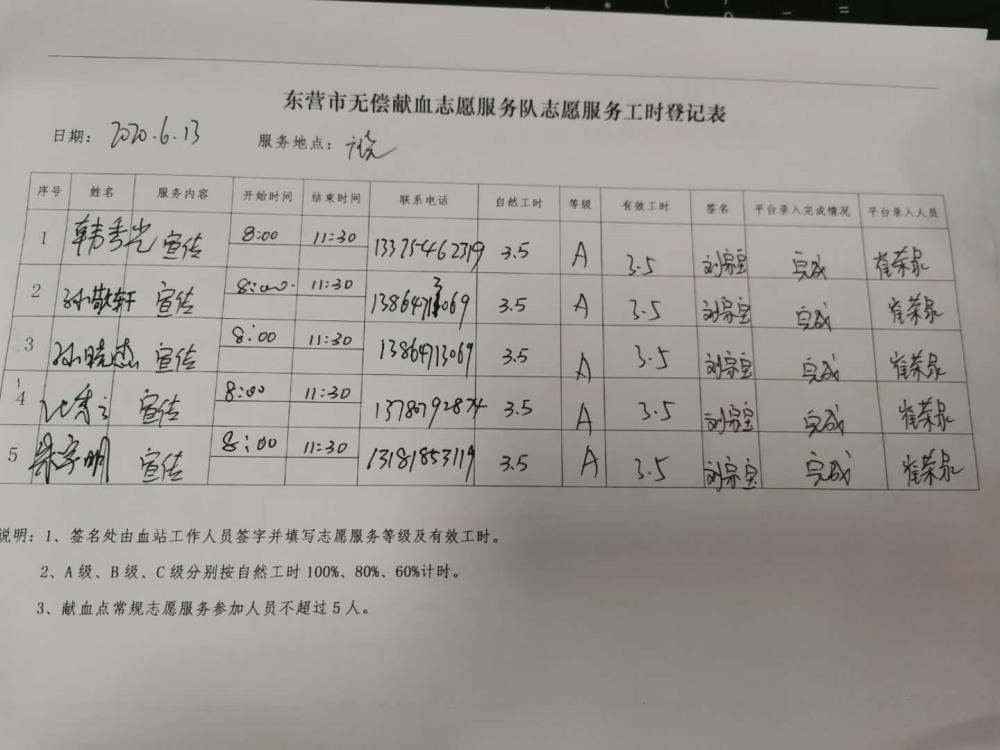 东营市无偿献血志愿服务队志愿服务工时登记表
日期: 2020.6.13 服务地点:
序号 姓名 服务内容 开始时间 结束时间 联系电话 自然工时 等级 有效工时 签名 平台录入完成情况 平台录入人员
1 韩秀光 宣传 8:00 11:30 13375462319 3.5 A 3.5 刘宗宝 完成 崔荣泉
2 孙敬轩 宣传 8:00 11:30 3.5 A 3.5 刘宗宝 完成 崔荣泉
3 孙晓杰 宣传 8:00 11:30 13864713069 3.5 A 3.5 刘宗宝 完成 崔荣泉
4 宣传 8:00 11:30 13780792874 3.5 A 3.5 刘宗宝 完成 崔荣泉
5 宣传 8:00 11:30 13181853119 3.5 A 3.5 刘宗宝 完成 崔荣泉
说明:1、签名处由血站工作人员签字并填写志愿服务等级及有效工时。
2、A级、B级、C级分别按自然工时100%、80%、60%计时。
3、献血点常规志愿服务参加人员不超过5人。